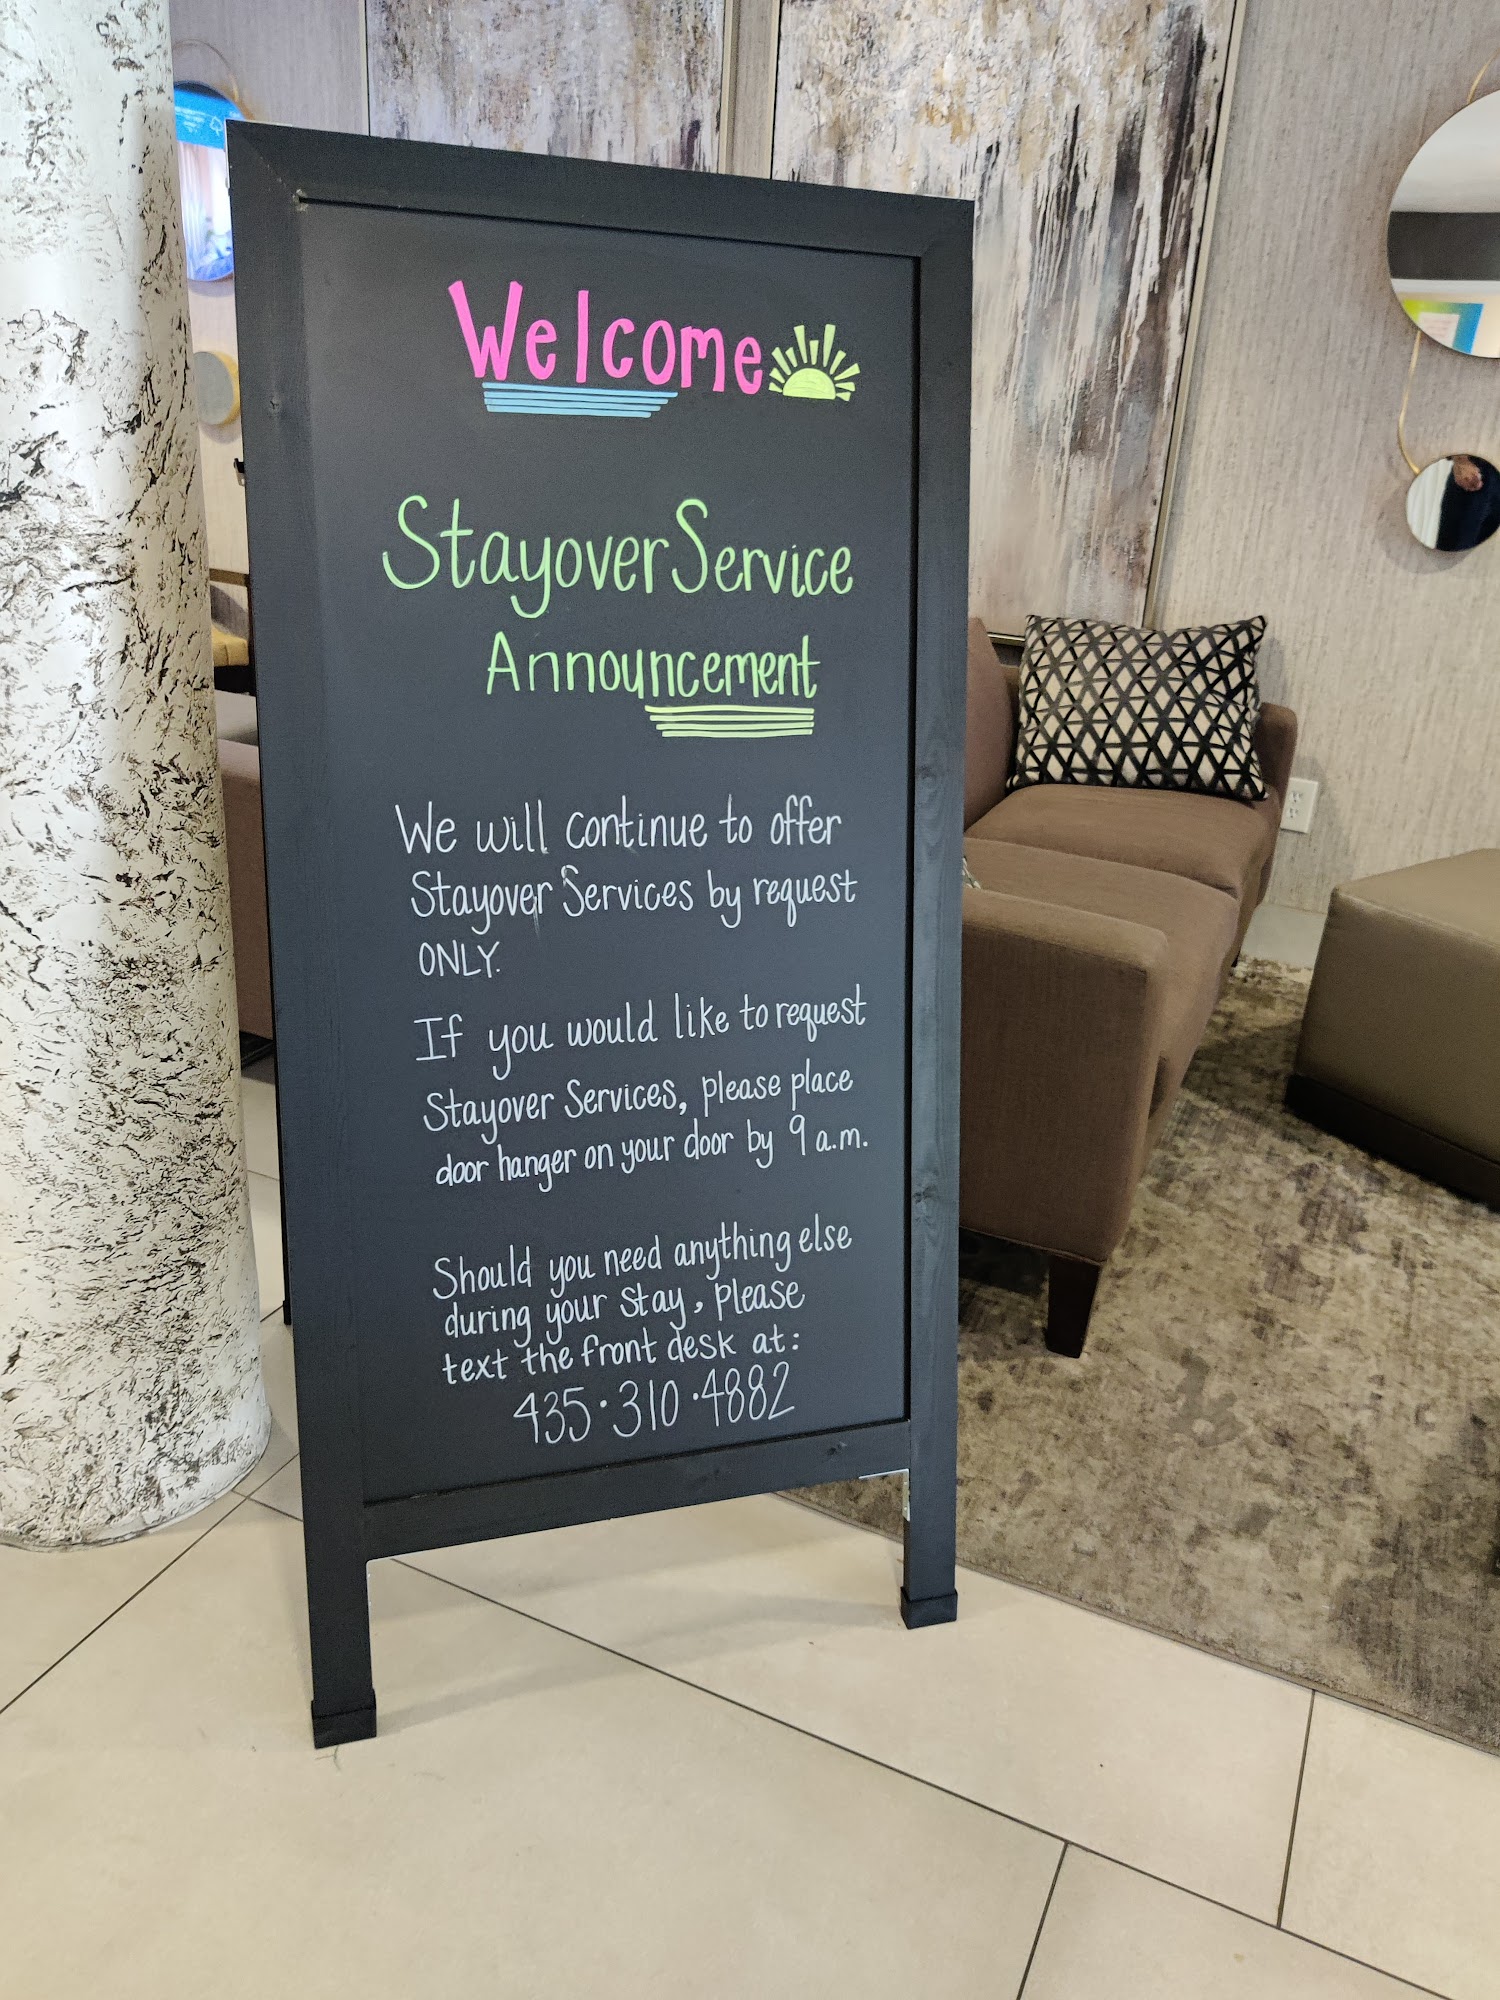 Welcome
Stayover Service
Announcement
We will continue to offer
Stayover Services by request
ONLY.
If you would like to request
Stayover Services, please place
door hanger on your door by 9 a.m.
Should you need anything else
during your stay, please
text the front desk at:
435·310·4882